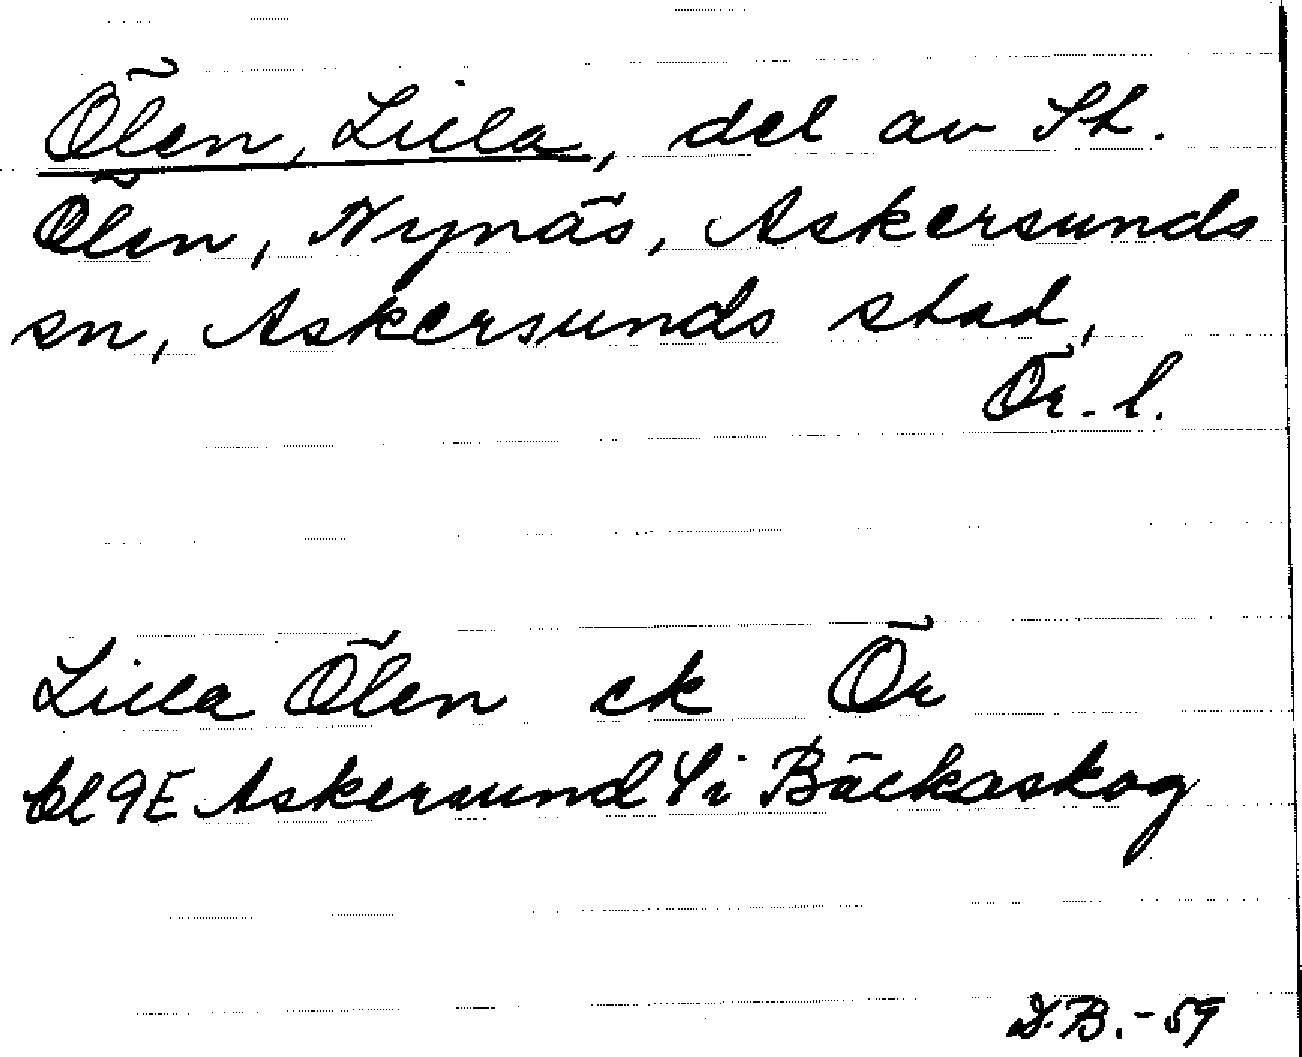 Ölen, Lilla, del av St.
Ölen, Nynäs, Askersunds
sn, Askersunds stad,
Ör. l.
Lilla Ölen ek Ör
bl 9E Askersund Si Bäckaskog
D.B.-59